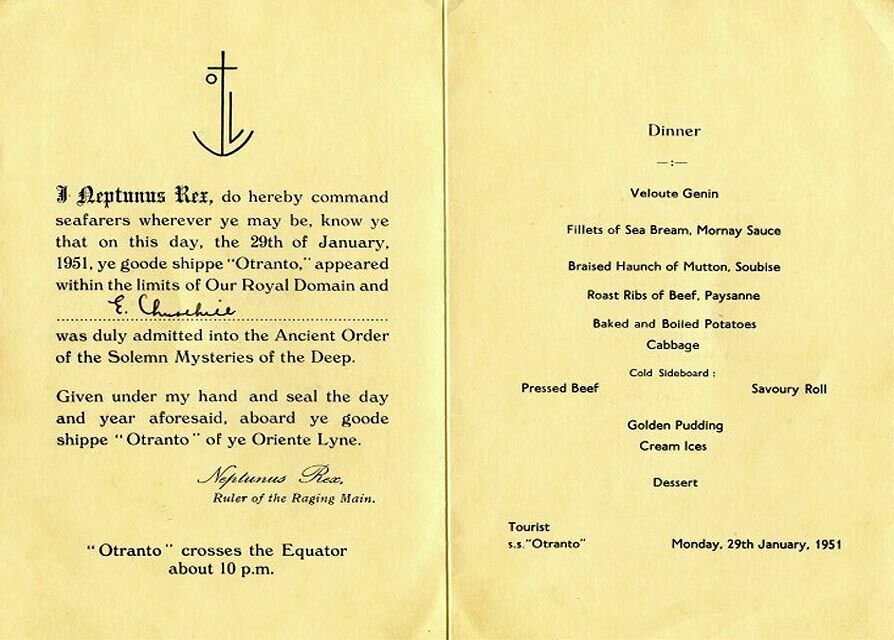 OL
I Neptunus Rex, do hereby command
seafarers wherever ye may be, know ye
that on this day, the 29th of January,
1951, ye goode shippe "Otranto," appeared
within the limits of Our Royal Domain and
E. Churchill
was duly admitted into the Ancient Order
of the Solemn Mysteries of the Deep.
Given under my hand and seal the day
and year aforesaid, aboard ye goode
shippe "Otranto" of ye Oriente Lyne.
Neptunus Rex,
Ruler of the Raging Main.
"Otranto" crosses the Equator
about 10 p.m.
Dinner
—:—
Veloute Genin
Fillets of Sea Bream, Mornay Sauce
Braised Haunch of Mutton, Soubise
Roast Ribs of Beef, Paysanne
Baked and Boiled Potatoes
Cabbage
Cold Sideboard :
Pressed Beef Savoury Roll
Golden Pudding
Cream Ices
Dessert
Tourist
s.s."Otranto" Monday, 29th January, 1951